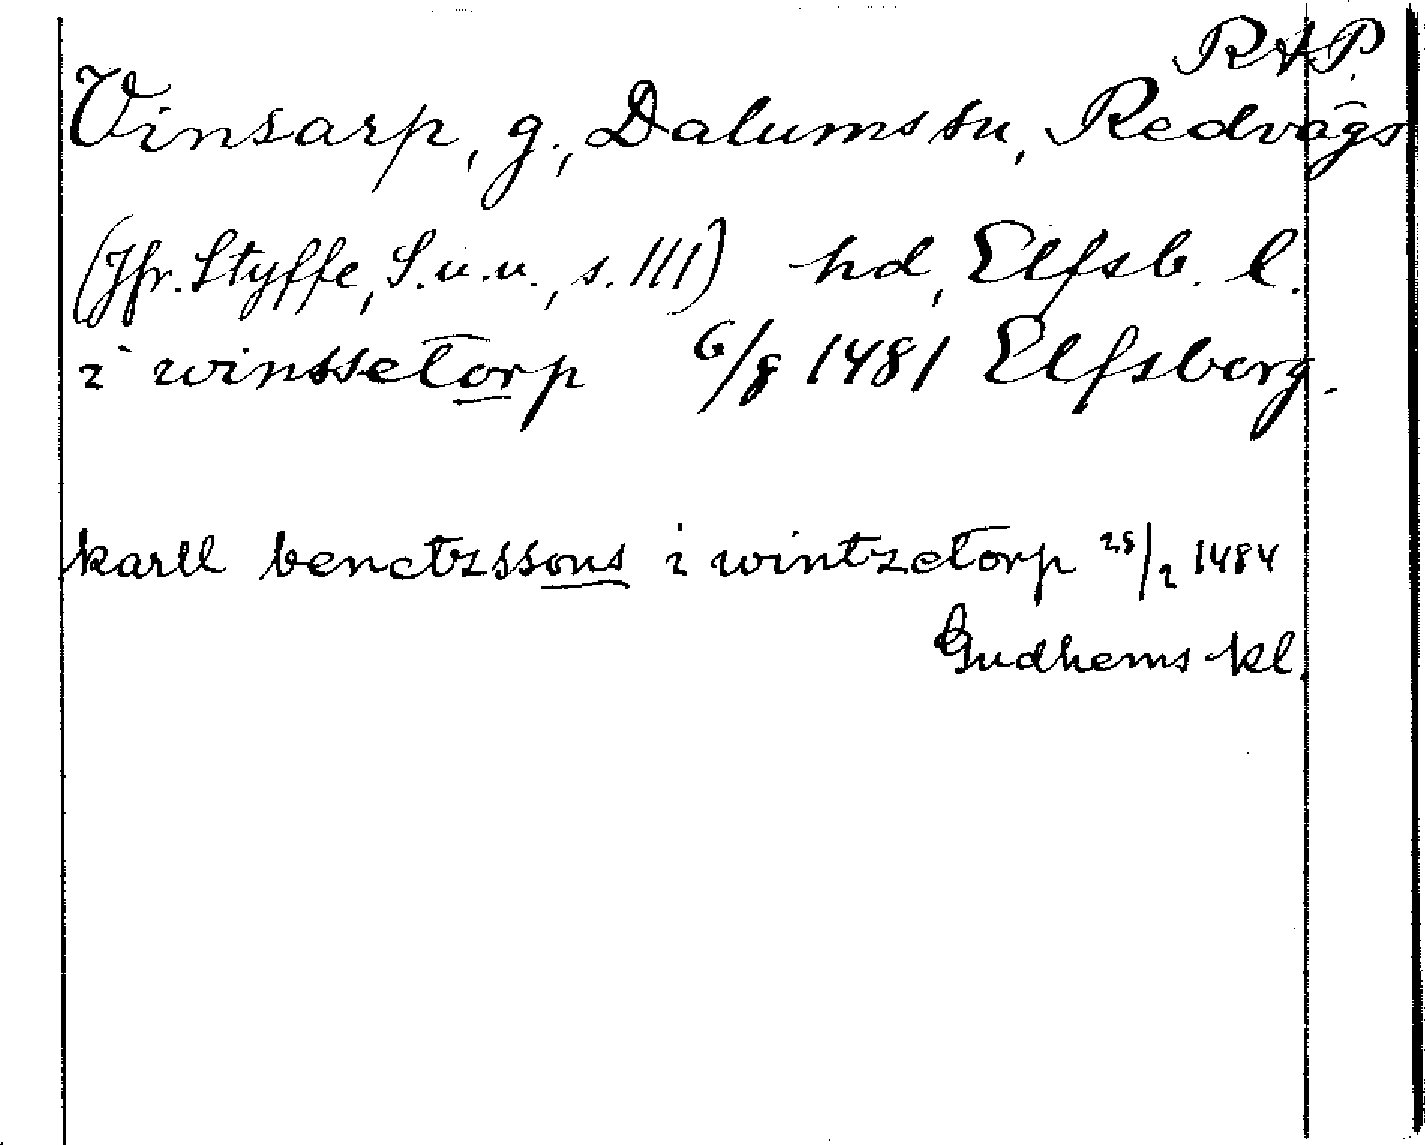 RAP.
Vinsarp, g., Dalums sn, Redvägs
(Jfr. Styffe, S.u.u., s. 111) hd, Elfsb. l.
i winssetorp 6/8 1481 Elfsborg.
karll benctzssons i wintzetorp 28/2 1484
Gudhems kl.